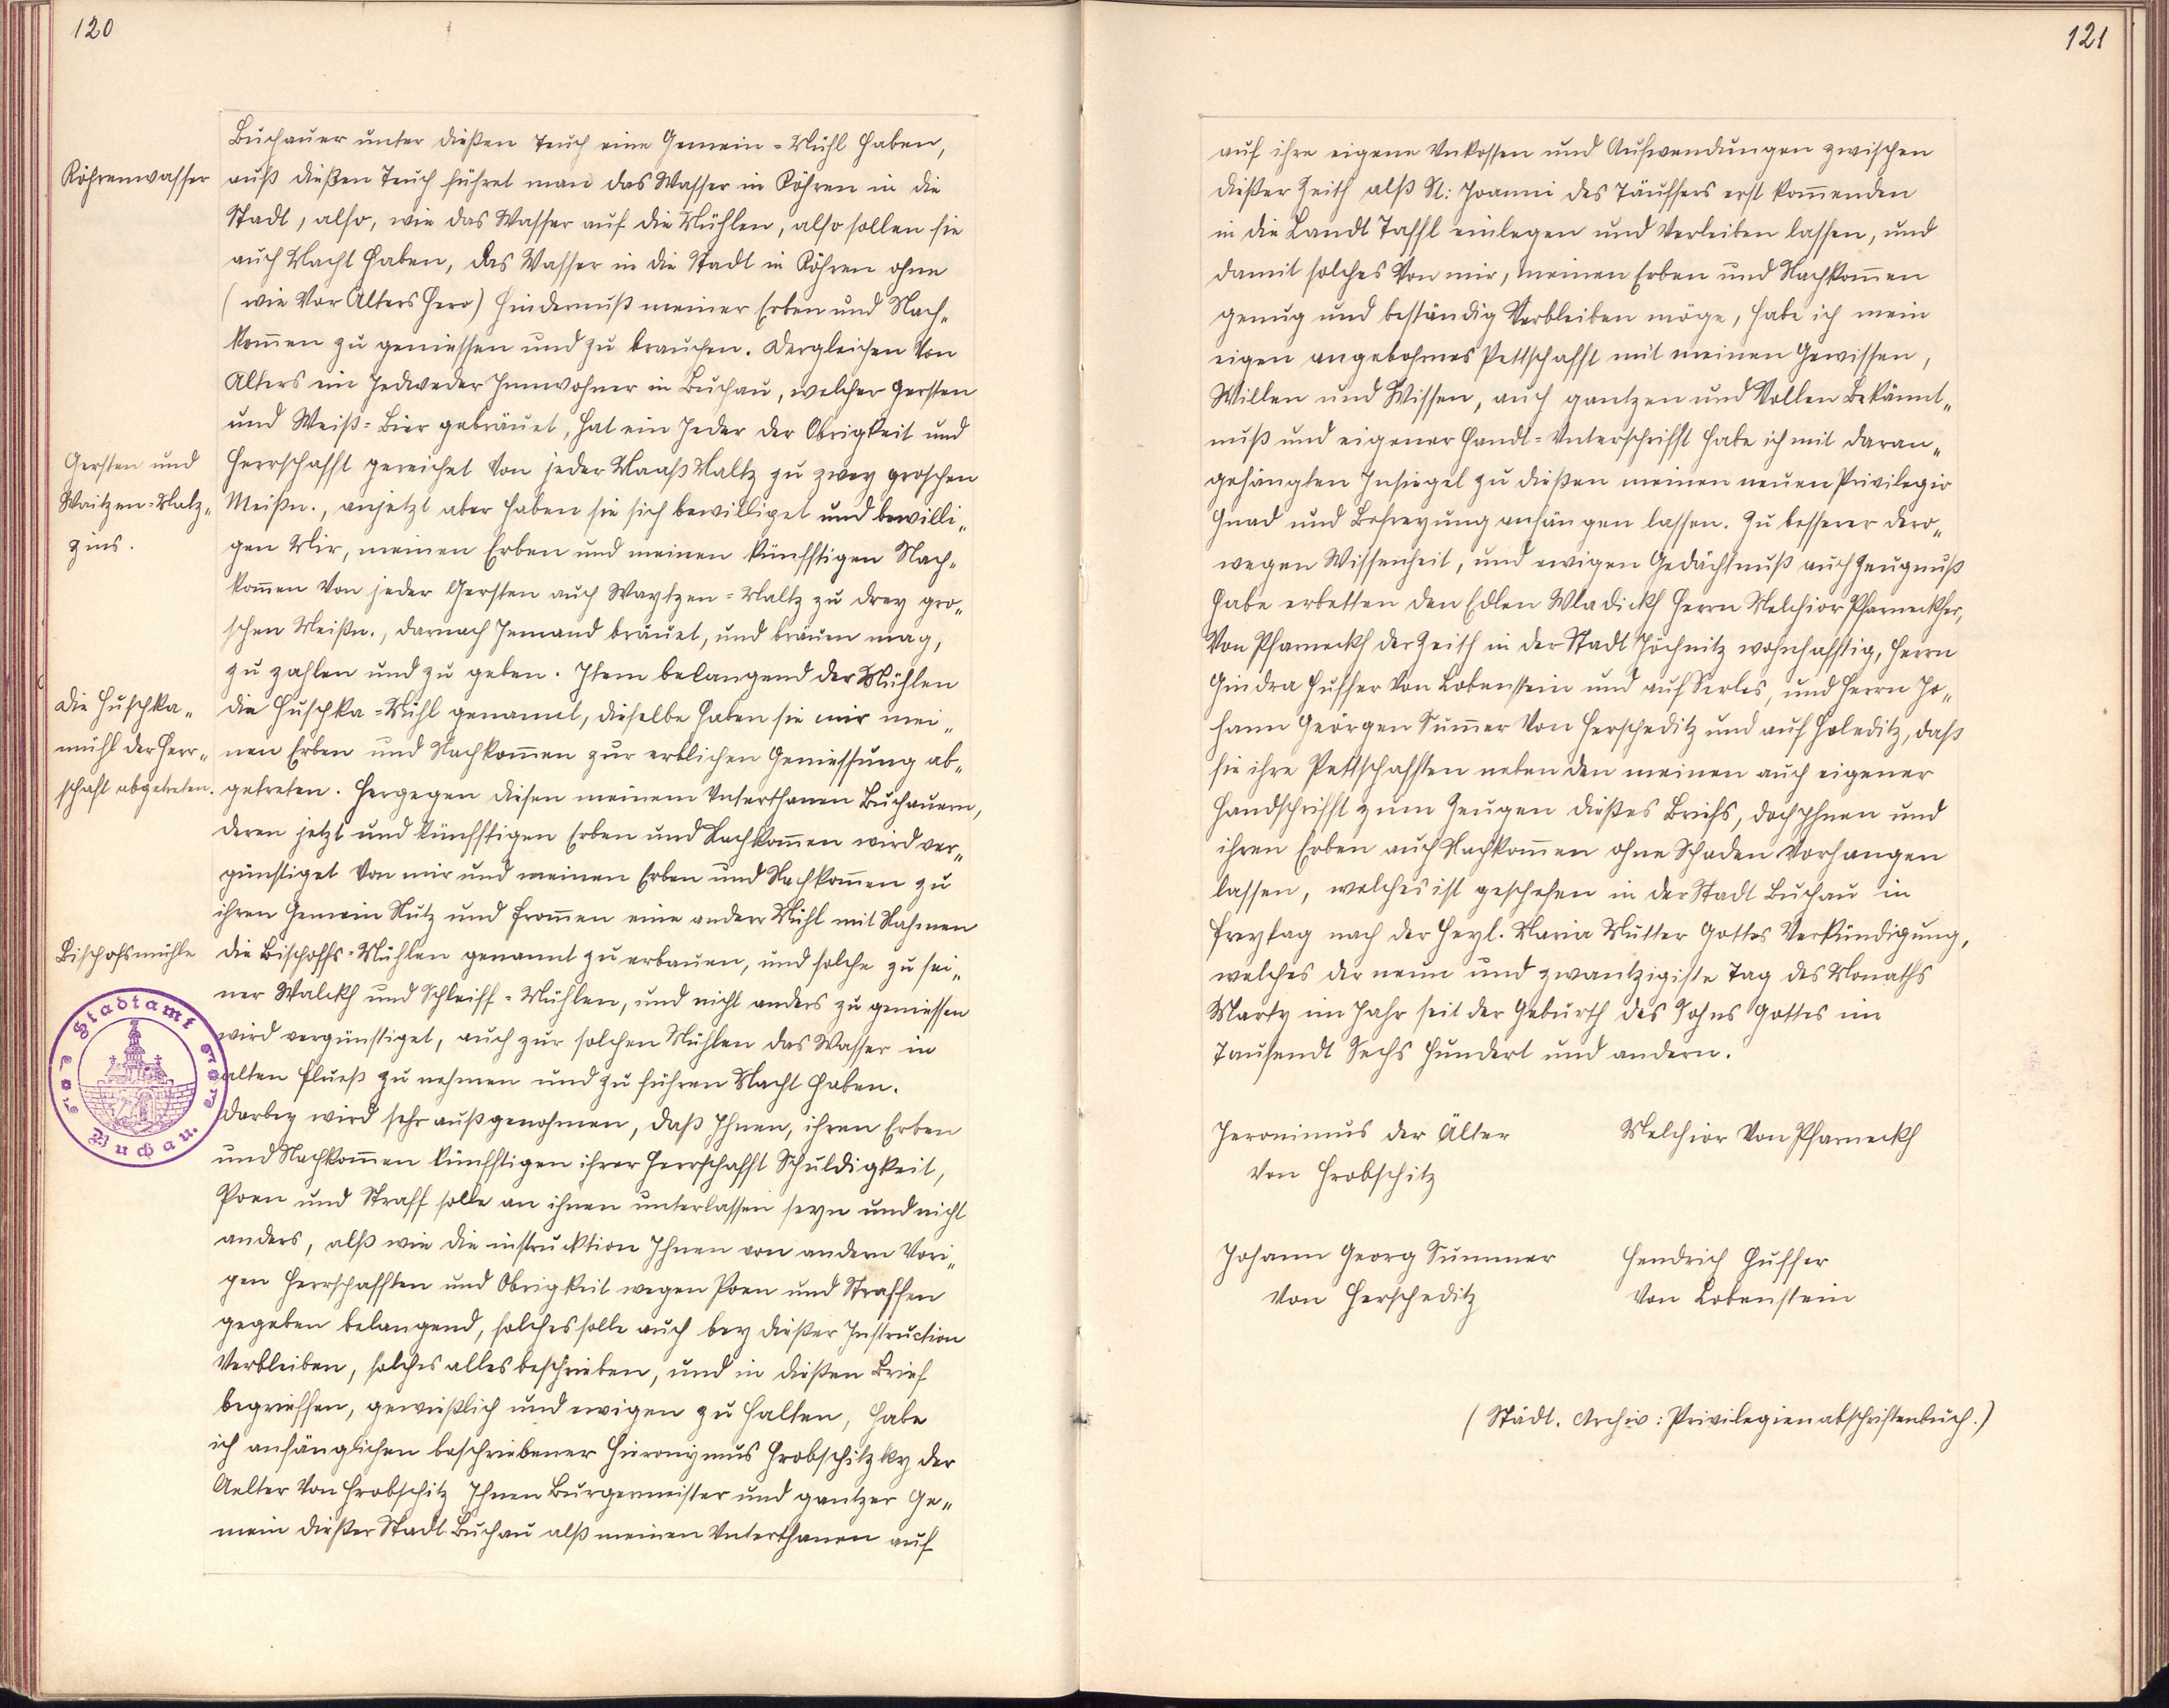 120
Buchauer unter dießen Teuch eine Gemein=Mühl haben,
Röhrenwasser
auß dießen Teuch führet man das Wasser in Röhren in die
Stadt, also, wie das Wasser auf die Mühlen, also sollen sie
auch Macht haben, das Wasser in die Stadt in Röhren ohne
(wie Vor Alters hero) Hindernuß meiner Erben und Nach„
kom̅en zu geniessen und zu brauchen. Dergleichen Von
Alters ein Jedweder Innwohner in Buchau, welcher Gersten
und Weiß=Bier gebräuet, hat ein Jeder der Obrigkeit und
Gersten und
Waitzen=Malz„
zins.
Herrschafft gereichet Von jeder Maaß Maltz zu zwey groschen
Meißn., anjetzt aber haben sie sich bewilliget und bewilli„
gen Mir, meinen Erben und meinen künfftigen Nach„
kom̅en Von jeder Gersten auch Waytzen=Maltz zu drey gro„
schen Meißn., darnach Jemand bräuet, und bräuen mag,
zu zahlen und zu geben. Item belangend der Mühlen
Die Huschka„
mühl der Herr„
schaft abgetreten.
die Huschka=Mühl genannt, dieselbe haben sie mir mei„
nen Erben und Nachkom̅en zur erblichen Geniessung ab„
getreten. Hergegen diesen meinem Vnterthanen Buchauern,
deren jetzt und künfftigen Erben und Nachkom̅en wird ver„
günstiget Von mir und meinen Erben und Nachkom̅en zu
ihren Gemein Nutz und from̅en eine andere Mühl mit Nahmen
Bischofsmühle
die Bischoffs=Mühlen genannt zu erbauen, und solche zu sei„
ner Walckh und Schleiff=Mühlen, und nicht anders zu geniessen
wird vergünstiget, auch zur solchen Mühlen das Wasser in
alten Flueß zu nehmen und zu führen Macht haben.
Darbey wird sehr außgenohmen, daß Ihnen, ihren Erben
und Nachkom̅en künfftigen ihrer Herrschafft Schuldigkeit,
Poen und Straff solle an ihnen unterlassen seyn und nicht
anders, alß wie die instrucktion Ihnen von andern Vori„
gen Herrschafften und Obrigkeit wegen Poen und Straffen
gegeben belangend, solches solle auch bey dießer Instruction
Verbleiben, solches alles beschrieben, und in dießen Brief
begrieffen, gewießlich und ewigen zu halten, habe
ich anfänglichen beschriebener Hieronymus Hrobschitzky der
Aelter Von Hrobschitz Ihnen Burgermeister und gantzer Ge„
mein dießer Stadt Buchau alß meinen Vnterthanen auf
Das Stadtamt der Stadt
Buchau.
121
auf ihre eigene Vnkossten und Aufwendungen zwischen
dießer Zeith alß St: Joanni des Täuffers erst kom̅enden
in die Landt Taffl einlegen und Verleiben lassen, und
damit solches Von mir, meinen Erben und Nachkom̅en
genug und beständig Verbleiben möge, habe ich mein
eigen angebohrnes Pettschafft mit meinen Gewissen,
Willen und Wissen, auch gantzen und Vollen Bekännt„
nuß und eigener Handt=Vnterschrifft habe ich mit daran„
gehängten Insiegel zu dießen meinen neuen Privilegio
Gnad und Befreyung anhängen lassen. Zu besserer dero„
wegen Wissenheit, und ewigen Gedächtnuß auch Zeugnuß
habe erbetten den Edlen Wladickh Herrn Melchior Pharneckher,
Von Pharneckh der Zeith in der Stadt Jöchnitz wohnhafftig, Herrn
Gindra Huffer Von Lobenstein und auf Serles, und Herrn Jo„
hann Geörgen Sum̅er Von Herscheditz und auf Holeditz, daß
sie ihre Pettschafften neben den meinen auch eigener
Handschrifft zum Zeugen dießes Briefs, doch Ihnen und
ihren Erben auch Nachkom̅en ohne Schaden Vorhangen
lassen, welches ist geschehen in der Stadt Buchau in
Freytag nach der Heyl. Maria Mutter Gottes Verkündigung,
welches der neun und zwantzigiste Tag des Monaths
Marty im Jahr seit der Geburth des Sohns Gottes im
Tausendt Sechs Hundert und andern.
Jeronimus der Älter
Von Hrobschitz
Melchior Von Pharneckh
Johann Georg Summer
Von Herscheditz
Hendrich Huffer
Von Lobenstein
(Städt. Archiv: Privilegienabschriftenbuch.)